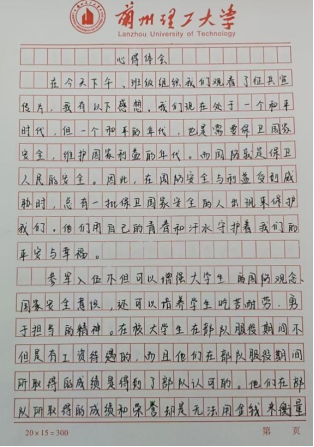 兰州理工大学
Lanzhou University of Technology
心得体会
在今天下午,班级组织我们观看了征兵宣
传片,我有以下感想。我们现在处于一个和平
时代,但一个和平的年代,也是需要保卫国家
安全,维护国家利益的年代。而国防就是保卫
人民的安全。因此,在国防安全与利益受到威
胁时,总有一批保卫国家安全的人出现来保护
我们,他们用自己的青春和汗水守护着我们的
平安与幸福。
参军入伍不但可以增强大学生的国防观念、
国家安全意识,还可以培养学生吃苦耐劳、勇
于担当的精神。在校大学生在部队服役期间不
但是有工资待遇的,而且他们在部队服役期间
所取得的成绩是得到了部队认可的。他们在部
队所取得的成绩和荣誉却是无法用金钱来衡量
20×15=300
第 页